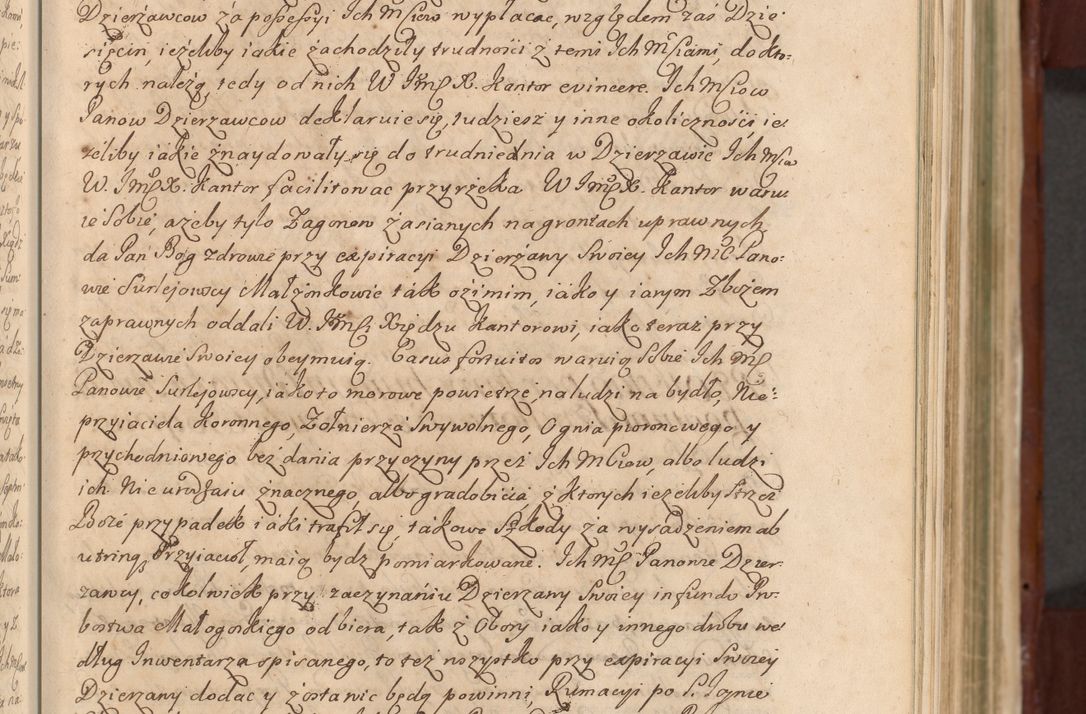 Dzierżawcow za possessyi Ich Msciow wypłacac, względem zaś Dzie-
sięcin, ieżeliby iakie zachodziły trudności z temi Ich Mściami, do kto-
rych należą, tedy od nich W JMX. Kantor evincere. Ich Mściow
Panow Dzierzawcow deklaruie się, tudziesz y inne okoliczności ie-
żeliby iakie znaydowały się do trudnienia w Dzierzawie Ich Mściow
W. JMX. Kantor facilitowac przyrzeka W JMX. Kantor waru-
ie sobie, ażeby tylo Zagonow zasianych na grontach uprawnych
da Pan Bog zdrowie przy expiracyi Dzierżawy Swoiey Ich Mć Pano-
wie Surlejowscy Małżonkowie tak ozimim, iako y iarym Zbożem
zaprawnych oddali W. JMci Xiędzu Kantorowi, iako teraz przy
Dzierzawie Swoiey obeymuią. Casus fortuitos waruią Sobie Ich Mć
Panowie Surlejowscy, iako to morowe powietrze, na ludzi na bydło, Nie-
przyiaciela Koronnego, Żołnierza Swywolnego, Ognia pioronowego y
przychodniowego bez dania przyczyny przez Ich Mściow, albo ludzi
ich. Nieurodzaiu znacznego, albo gradobicia, z ktorych ieżeliby strzeż
Boże przypadek iaki trafił się, takowe Szkody za wysadzeniem ab
utrinq Przyiacioł, maią bydz pomiarkowane. Ich Mć Panowie Dzier-
zawcy, cokolwiek przy zaczynaniu Dzierzawy Swoiey in fundo Pro-
bostwa Małogoskiego odbiera, tak z Obory iako y innego drobu we-
dług Inwentarza spisanego, to też wszystko przy expiracyi Swoiey
Dzierzawy dodac y zostawic będą powinni, Rumacyi po S. Janie